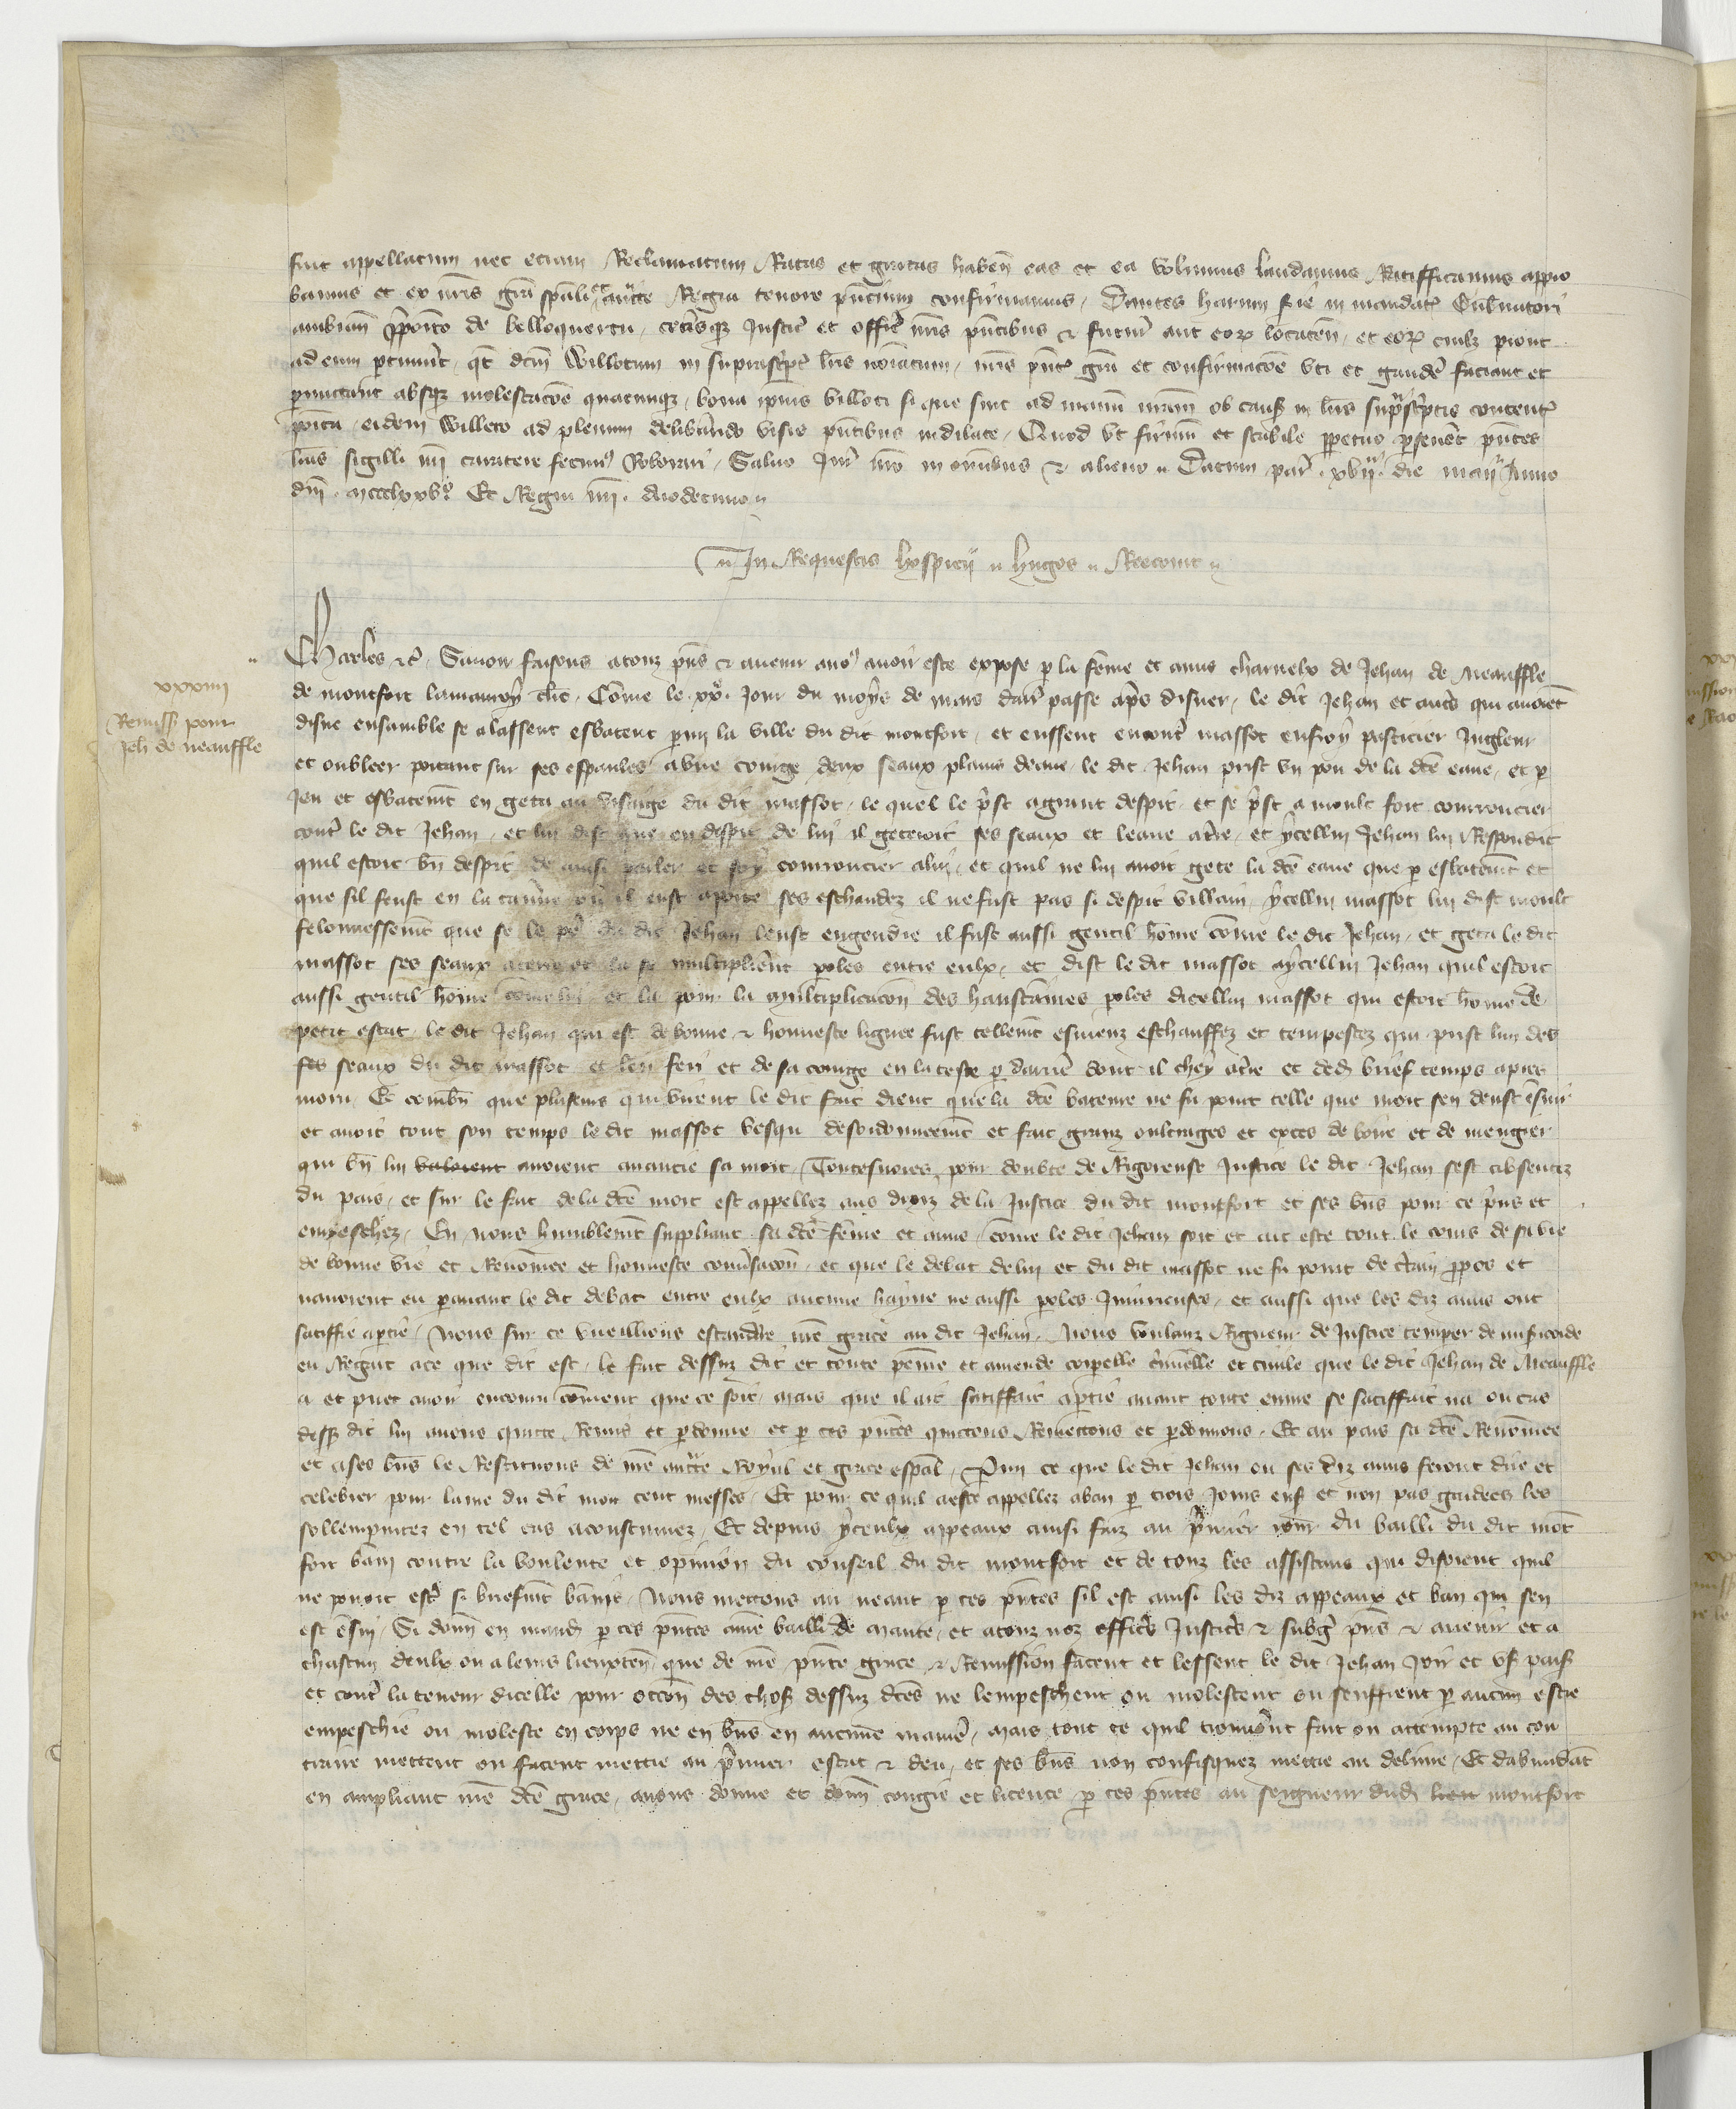 fuit appellatum nec etiam Reclamatum Ratas et gratas haben̄ eas et ea volumus laudamus Ratifficamus appro
bamus et ex nr̄is grā sp̄ali et auct̄te Regia tenore p̄ncium confirmamus, Dantes harum s̄ie in mandat̄ Gub̄natori
ambian̄ p̄posito de belloquercu, cet̄isq3 Justic̄ et offic̄ nr̄is p̄ntibus & futur̄ aut eor̄ locaten̄, et eor̄ cuil3 prout
ad eum p̄tinuit, q̄t dc̄m Willotum in suprasc̄pt̄ lr̄is noīatum, nr̄is p̄nt̄ grā et confirmacōe vti et gaudē faciant et
p̄mictant absq3 molestacōe quacunq3, bona ip̄ius Villoti si que sint ad manū nrām ob caus̄ in lr̄is sup̄sc̄ptis content̄
p̄oīta, eidem Willoto ad plenum delib̄ando visis p̄ntibus indilate, Quod vt firmū et stabile p̄petuo p̄seuēt p̄ntes
lr̄as sigilli nr̄i caratere fecim9 Roborari, Saluo Jur̄ nr̄o in om̄ibus & alieno Datum par̄ xvij. die maij Anno
dn̄i mccclxxv.o Et Regni nr̄i. duodecimo
In Requestis hospicij Hugos Recoint
Charles &c̄. Sauoir faisons a touz p̄ns & auenir no9 auoir este expose p̄ la fēme et amis charnelx de Jehan de Neauffle
de montfort lamaurȳ clic̄. Cōme le xx.e Jour du moys de mars darr̄ passe ap̄s disner, le dit Jehan et aut̄s qui auoiēt
disne ensamble se alassent esbatent p̄mi la ville du dit montfort, et eussent encont̄ massot pasticier Jugleur
et oubleer portant sur ses espaules a vne courge deux seaux plains deaue, le dit Jehan prist vn pou de la dc̄e eaue, et p̄
Jeu et esbatem̄t en geta au visaige du dit massot, le quel le p̄st a grant despit, et se p̄st a moult fort courroucier
cont̄ le dit Jehan, et lui dist que en despit de lui il geteroit ses seaux et leaue at̄re, et ȳcellui Jehan lui Respondit
quil estoit bn̄ despit de ainsi parler et soȳ courroucier a lui, et quil ne lui auoit gete la dc̄e eaue que p̄ esbatem̄t et
que sil feust en la tau̇ne ou il eust aporte ses eschaudez il ne fust pas si despit villain, ȳcellui massot lui dist moult
felonnessem̄t que se le pē du dit Jehan leust engendre il fust aussi gentil hōme cōme le dit Jehan, et geta le dit
massot ses seaux at̄re et la se multiplieīt p̄oles entre eulx, et dist le dit massot aȳcellui Jehan quil estoit
aussi gentil hōme cōme lui, et la pour la multiplicacōn des haustaīnes p̄oles dicellui massot qui estoit hōme de
petit estat, le dit Jehan qui est de bonne & honneste lignee fust tellem̄t esmeuz eschauffez et tempestez qui prist lun des
ses seaux du dit massot et len feri et de sa courge en la teste p̄ darrier dont il cheȳ at̄re et ded̄ brief temps apres
moru, Et combn̄ que pluseurs qui virent le dit fait dient que la dc̄e bateure ne fu point telle que mort sen deust ensuir
et auoit tout son temps le dit massot vesqu desordonneem̄t et fait granz oultraiges et exces de boire et de mengier
qui bn̄ lui valoient auoient auancie sa mort, Toutesuoies pour doubte de Rigoreuse Justice le dit Jehan sest absentez
du pais, et sur le fait de la dc̄e mort est appellez aus droiz de la Justice du dit montfort et ses bn̄s pour ce p̄ns et
empeschez, En nous humblem̄t suppliant sa dc̄e fēme et amis, cōme le dit Jehan soit et ait este tout le cours de sa vie
de bonne vie et Renōmee et honneste conu̇sacōn, et que le debat de lui et du dit massot ne fu point de c̄tain p̄pos et
nauoient eu p̄auant le dit debat entre eulx aucune hayne ne aussi p̄oles Jniurieuses, et aussi que les diz amis ont
satiffie a p̄tie, Nous sur ce vueillions estandre nr̄e grace au dit Jehan, Nous voulanz Rigueur de Justice temp̄er de mis̄icorde
eu Regart ace que dit est, le fait dessuz dit et toute peīne et amende corpelle c̄iminelle et ciuile que le dit Jehan de Neauffle
a et puet auoir encouru cōment que ce soit, Mais que il ait satiffait a p̄tie auant toute euure se satiffait na ou cas
desus̄ dit lui auons quitte Remis et p̄donne et p̄ ces p̄ntes quictons Remectons et p̄donnons. Et au pais sa dc̄e Renōmee
et a ses bn̄s le Restituons de nr̄e auct̄te Royal et grace esp̄al, P̄mi ce que le dit Jehan ou ses diz amis feront dire et
celebrer pour lame du dit mort cent messes, Et pour ce quil a este appellez a ban p̄ trois Jours enf et non pas gardees les
sollempnitez en tel cas acoustumez, Et depuis yceulx appeaux ainsi faiz au p̄mier iour du bailli du dit mōt
fort bani contre la voulente et opinion du conseil du dit montfort et de touz les assistans qui disoient quil
ne pouoit estr̄ si briefmt̄ bānis, Nous mettons au neant p̄ ces p̄ntes sil est ainsi les diz appeaux et ban qui sen
est ēsui, Si donn̄ en mand̄ p̄ ces p̄ntes au nr̄e bailli de Mante, et a touz noz offic̄s Justic̄s & subḡ p̄ns & auenir et a
chascun deulx ou a leurs lieuxten̄, que de nr̄e p̄nte grace & Remission facent et lessent le dit Jehan Joīr et vs̄ pais̄
et cont̄ la teneur dicelle pour occōn des chos̄ dessuz dc̄es ne lempeschent ou molestent ou seuffrent p̄ aucun estre
empeschie ou moleste en corps ne en bn̄s en aucune manier̄, Mais tout ce quil trouuer̄nt fait ou attempte au con
traire mettent ou facent mettre au p̄mier estat & deu, et ses bn̄s non confisquez mettre au deliure, Et dabundāt
en ampliant nr̄e dc̄e grace, auons donne et donn̄ congie et licence p̄ ces p̄ntes au seigneur dud̄ lieu montfort
xxxiiij
Remissi pour
Jeh̄ de neauffle